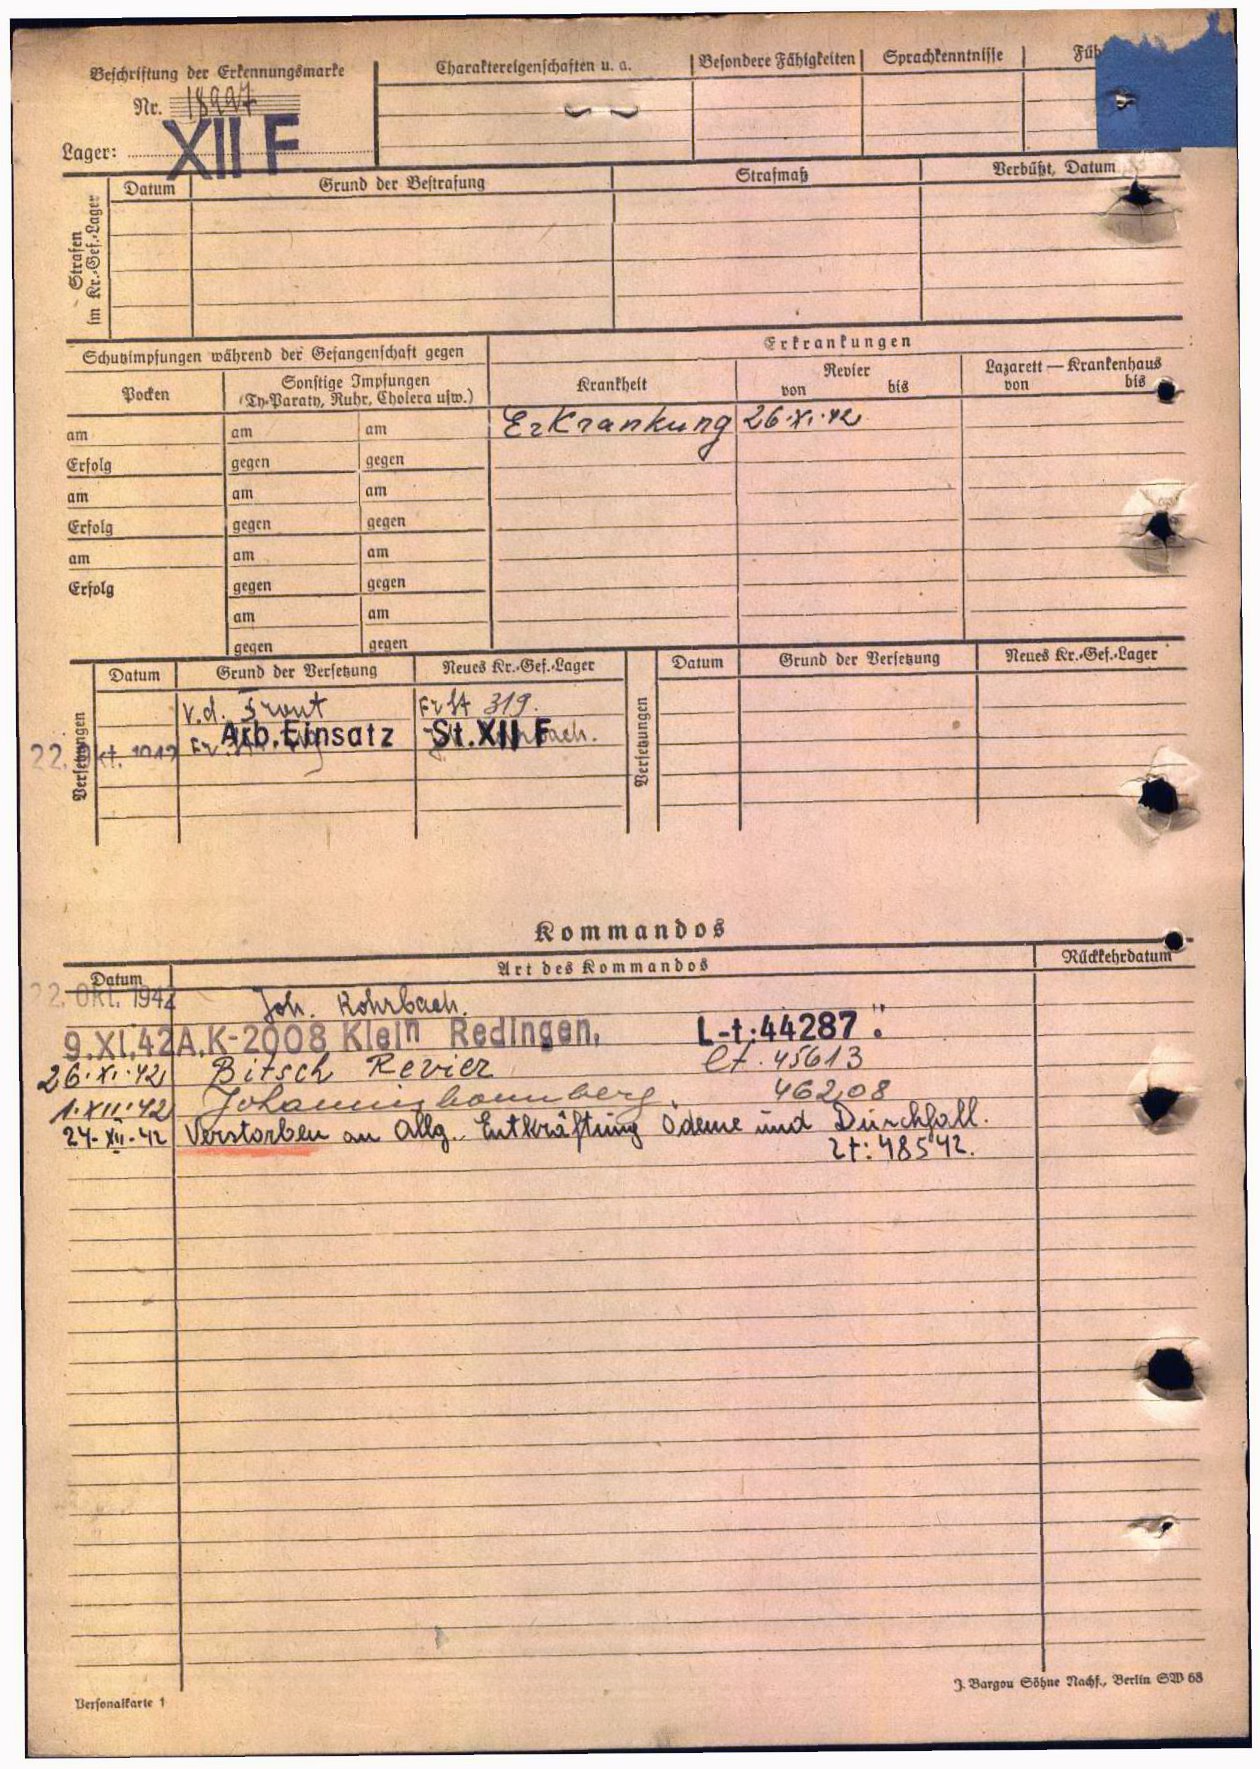 Beschriftung der Erkennungsmarke
Nr. 18997
Lager: XII F
Charaktereigenschaften u. a.
Besondere Fähigkeiten
Sprachkenntnisse
Füh
Strafen im Kr.-Gef.-Lager
Datum
Grund der Bestrafung
Strafmaß
Verbüßt, Datum
Schutzimpfungen während der Gefangenschaft gegen
Erkrankungen
Pocken
Sonstige Impfungen
(Ty-Paraty, Ruhr, Cholera usw.)
Krankheit
Revier
von bis
Lazarett — Krankenhaus
von bis
am am am
Erkrankung 26.XI.42
Erfolg gegen gegen
am am am
Erfolg gegen gegen
am am am
Erfolg gegen gegen
am am
gegen gegen
Versetzungen
Datum
Grund der Versetzung
Neues Kr.-Gef.-Lager
Versetzungen
Datum
Grund der Versetzung
Neues Kr.-Gef.-Lager
v. d. Front Fr St 319.
22. Okt. 1942 Arb. Einsatz St. XII F
Kommandos
Datum
Art des Kommandos
Rückkehrdatum
22. Okt. 1942 Joh. Rohrbach.
9.XI.42 A.K-2008 Klein Redingen. L-t:44287
26.XI.42 Bitsch Revier lt. 45613
1.XII.42 462,08
24.XII.42 Verstorben an Allg. Entkräftung Ödeme und Durchfall.
lt: 48542.
Personalkarte 1
J. Bargou Söhne Nachf., Berlin SW 68